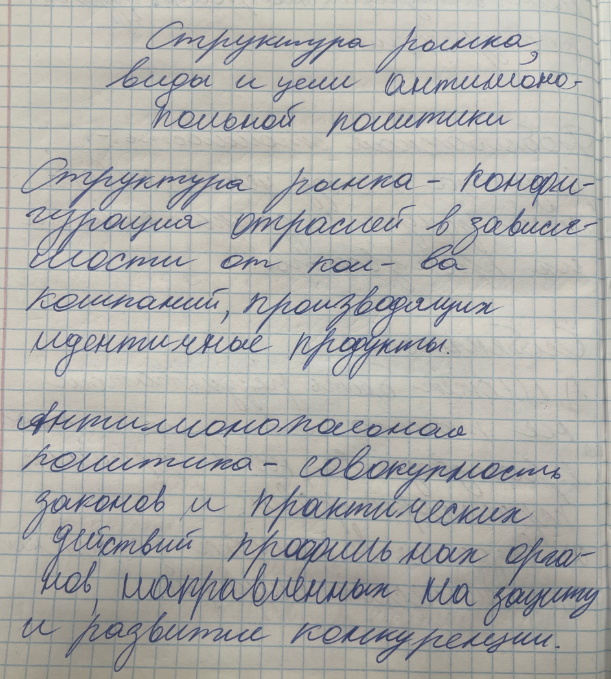 Структура рынка,
виды и цели антимоно-
польной политики
Структура рынка - конфи-
гурация отраслей в зависи-
мости от кол-ва
компаний, производящих
идентичные продукты.
Антимонопольная
политика - совокупность
законов и практических
действий профильных орга-
нов, направленных на защиту
и развитие конкуренции.